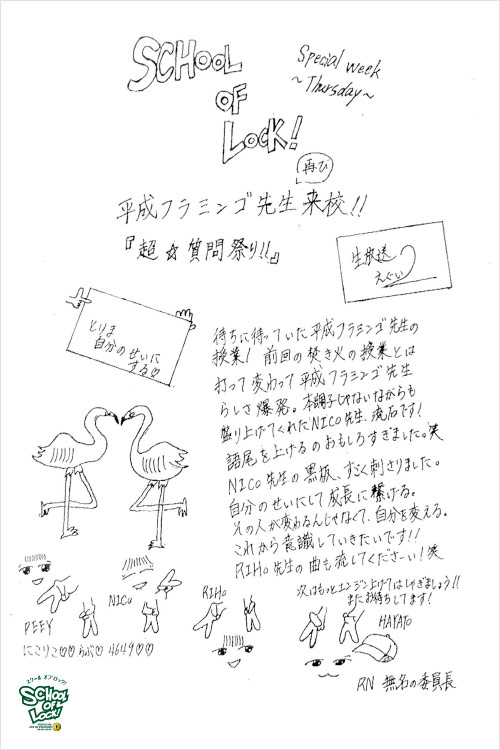 SCHOOL
OF
LOCK!
Special week
～Thursday～
再び
平成フラミンゴ先生来校!!
『超☆質問祭り!!』
生放送
えぐい
とりま
自分のせいに
する♡
待ちに待っていた平成フラミンゴ先生の
授業! 前回の焚き火の授業とは
打って変わって平成フラミンゴ先生
らしさ爆発。本調子じゃないながらも
盛り上げてくれたNICO先生、流石です!
語尾を上げるのおもしろすぎました。笑
NICO先生の黒板、すごく刺さりました。
自分のせいにして成長に繋げる。
その人が変わるんじゃなくて、自分を変える。
これから意識していきたいです!!
RIHO先生の曲も流してくださーい! 笑
次はもっとエンジン上げてはしゃぎましょう!!
またお待ちしてます!
PEEY
NICO
RIHO
HAYATO
にこりこ♡♡らぶ♡ 4649♡♡
RN 無名の委員長
スクール オブ ロック!
SCHOOL
OF
LOCK!